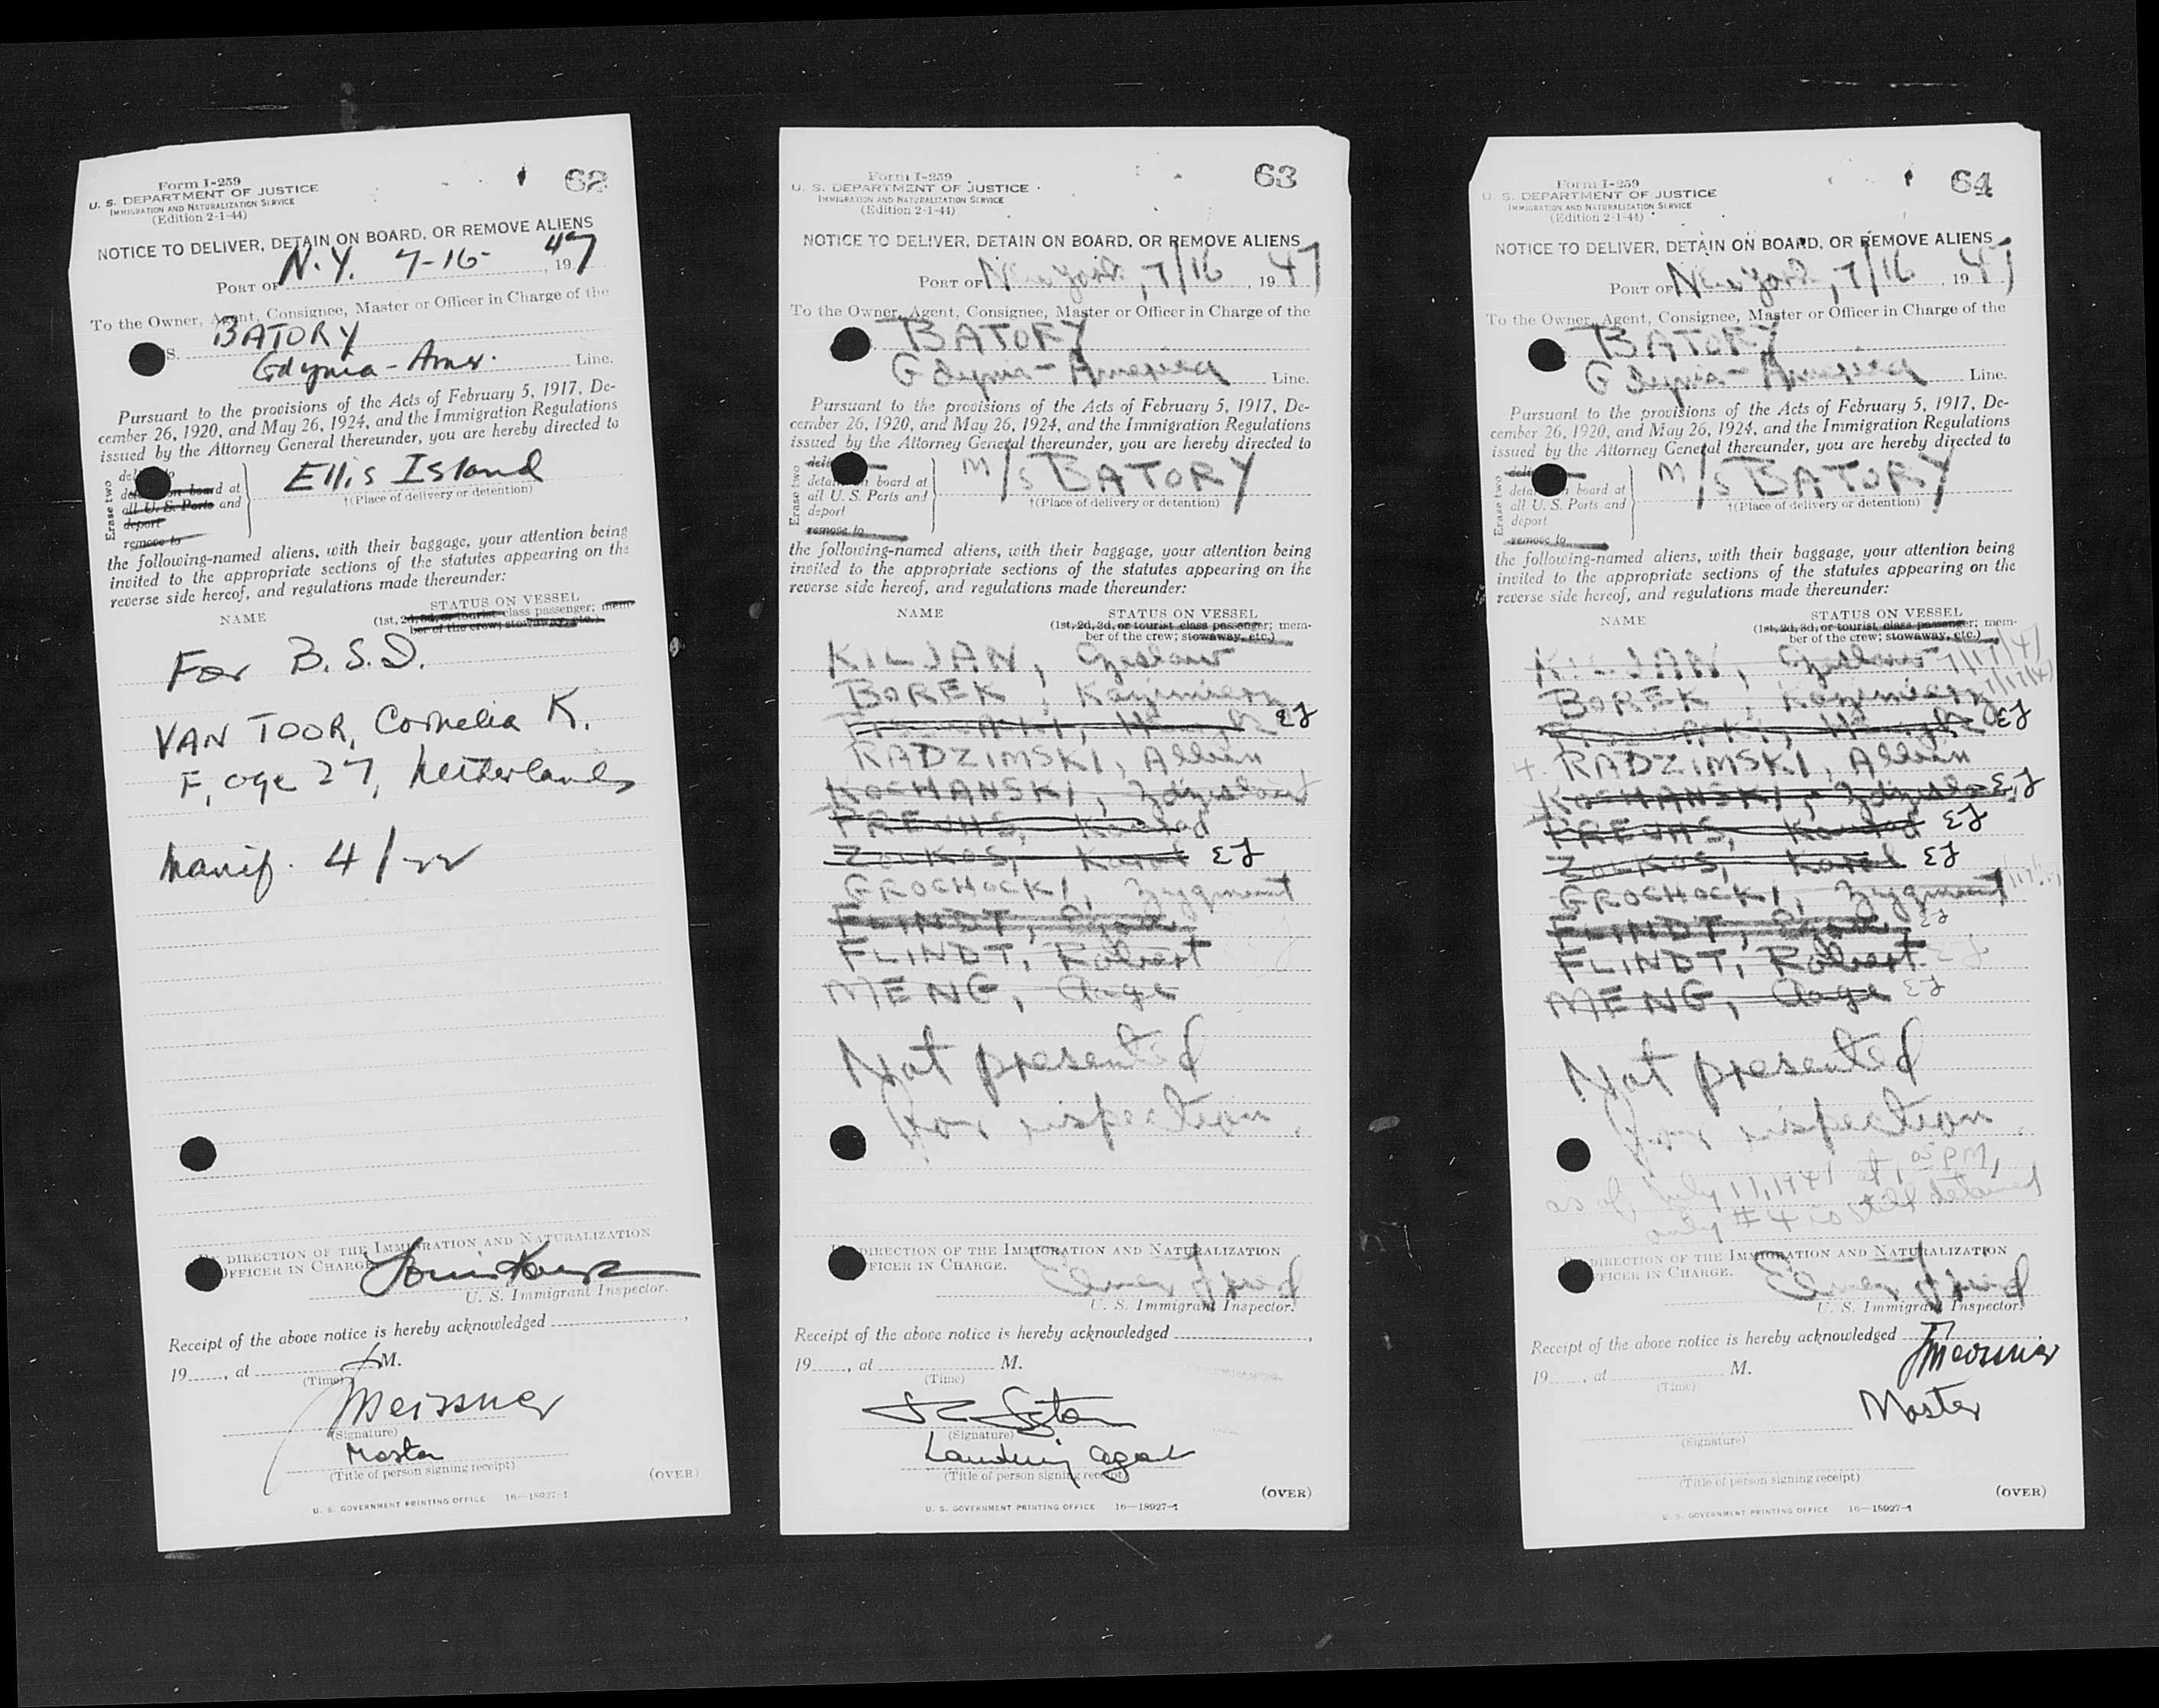 62
Form I-259
U. S. DEPARTMENT OF JUSTICE
IMMIGRATION AND NATURALIZATION SERVICE
(Edition 2-1-44)
NOTICE TO DELIVER, DETAIN ON BOARD, OR REMOVE ALIENS
PORT OF N.Y. 7-16- , 1947
To the Owner, Agent, Consignee, Master or Officer in Charge of the
S. BATORY
Gdynia-Amer. Line.
Pursuant to the provisions of the Acts of February 5, 1917, De-
cember 26, 1920, and May 26, 1924, and the Immigration Regulations
issued by the Attorney General thereunder, you are hereby directed to
Erase two
Ellis Island
on board at
all U. S. Ports and
deport
remove to
†(Place of delivery or detention)
the following-named aliens, with their baggage, your attention being
invited to the appropriate sections of the statutes appearing on the
reverse side hereof, and regulations made thereunder:
NAME STATUS ON VESSEL
(1st, 2d, 3d, or tourist class passenger; mem-
ber of the crew; stowaway, etc.)
For B.S.I.
VAN TOOR, Cornelia K.
F, age 27, Netherlands
Manif. 4/22
DIRECTION OF THE IMMIGRATION AND NATURALIZATION
OFFICER IN CHARGE.
U. S. Immigrant Inspector.
Receipt of the above notice is hereby acknowledged ,
19 , at M.
(Time)
Meissner
(Signature)
Master
(Title of person signing receipt)
(OVER)
U. S. GOVERNMENT PRINTING OFFICE 16—18927-1
63
Form I-259
U. S. DEPARTMENT OF JUSTICE
IMMIGRATION AND NATURALIZATION SERVICE
(Edition 2-1-44)
NOTICE TO DELIVER, DETAIN ON BOARD, OR REMOVE ALIENS
PORT OF New York, 7/16 , 1947
To the Owner, Agent, Consignee, Master or Officer in Charge of the
BATORY
Gdynia-America Line.
Pursuant to the provisions of the Acts of February 5, 1917, De-
cember 26, 1920, and May 26, 1924, and the Immigration Regulations
issued by the Attorney General thereunder, you are hereby directed to
Erase two
M/S BATORY
board at
all U. S. Ports and
deport
remove to
†(Place of delivery or detention)
the following-named aliens, with their baggage, your attention being
invited to the appropriate sections of the statutes appearing on the
reverse side hereof, and regulations made thereunder:
NAME STATUS ON VESSEL
(1st, 2d, 3d, or tourist class passenger; mem-
ber of the crew; stowaway, etc.)
KILJAN, Czeslaw
BOREK, Kazimierz
EJ
RADZIMSKI, Albin
KOCHANSKI, Zdzislaw
PREUHS, Konrad
ZOLKOS, Karol EJ
GROCHOCKI, Zygmunt
FLINDT,
FLINDT, Robert
MENG, Aage
Not presented
for inspection.
DIRECTION OF THE IMMIGRATION AND NATURALIZATION
OFFICER IN CHARGE.
U. S. Immigrant Inspector.
Receipt of the above notice is hereby acknowledged ,
19 , at M.
(Time)
(Signature)
Landing agent
(Title of person signing receipt)
(OVER)
U. S. GOVERNMENT PRINTING OFFICE 16—18927-1
64
Form I-259
U. S. DEPARTMENT OF JUSTICE
IMMIGRATION AND NATURALIZATION SERVICE
(Edition 2-1-44)
NOTICE TO DELIVER, DETAIN ON BOARD, OR REMOVE ALIENS
PORT OF New York, 7/16 , 1947
To the Owner, Agent, Consignee, Master or Officer in Charge of the
BATORY
Gdynia-America Line.
Pursuant to the provisions of the Acts of February 5, 1917, De-
cember 26, 1920, and May 26, 1924, and the Immigration Regulations
issued by the Attorney General thereunder, you are hereby directed to
Erase two
M/S BATORY
board at
all U. S. Ports and
deport
remove to
†(Place of delivery or detention)
the following-named aliens, with their baggage, your attention being
invited to the appropriate sections of the statutes appearing on the
reverse side hereof, and regulations made thereunder:
NAME STATUS ON VESSEL
(1st, 2d, 3d, or tourist class passenger; mem-
ber of the crew; stowaway, etc.)
KILJAN, Czeslaw 7/17/47
BOREK, Kazimierz 7/17/47
EJ
4. RADZIMSKI, Albin
KOCHANSKI, Zdzislaw EJ
PREUHS, Konrad EJ
ZOLKOS, Karol EJ
GROCHOCKI, Zygmunt
FLINDT, EJ
FLINDT, Robert EJ
MENG, Aage EJ
Not presented
for inspection.
as of July 17, 1947 at PM,
only #4 is still detained
DIRECTION OF THE IMMIGRATION AND NATURALIZATION
OFFICER IN CHARGE.
U. S. Immigrant Inspector.
Receipt of the above notice is hereby acknowledged
19 , at M.
(Time)
Meissner
Master
(Signature)
(Title of person signing receipt)
(OVER)
U. S. GOVERNMENT PRINTING OFFICE 16—18927-1